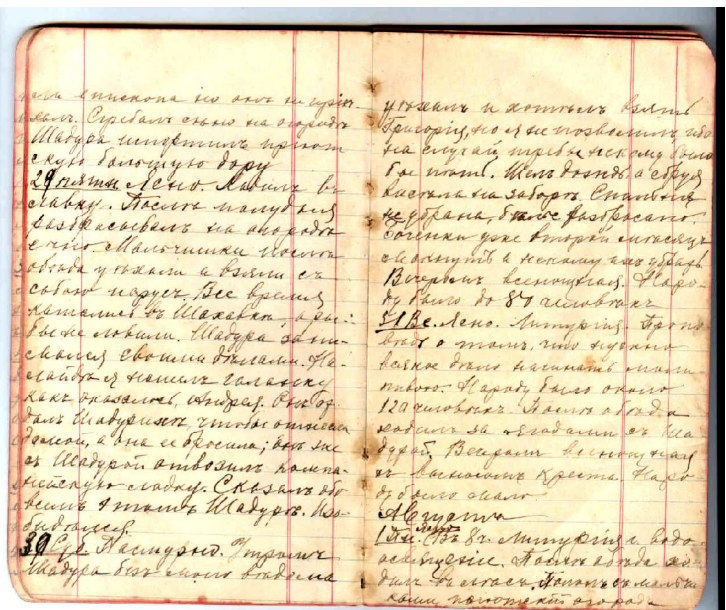 епископа но онъ не пріѣ
халъ. Сгребалъ сѣно на огородѣ
Шадура испортилъ
скую большую дору
29 пятн. Ясно. Ѣздилъ въ
ставку. Послѣ полудня
разбрасывалъ на огородѣ
сѣно. Мальчишки послѣ
обѣда уѣхали и взяли съ
собою парусъ. Все время
катались въ а ры-
бы не ловили. Шадура зани-
мался своими дѣлами. На-
я нашелъ
какъ оказалось, Андрея. Онъ от-
далъ Шадурихѣ, чтобы отнесла
домой, а она ее бросила; онъ же
съ Шадурой отвозилъ
лодку. Сказалъ обо
всемъ этомъ Шадурѣ. Изо-
30 Суб. Пасмурно. Утромъ
Шадура безъ моего вѣдома
уѣхалъ и хотѣлъ взять
Григорія, но я не позволилъ, ибо
на случай требы некому было
бы. Шелъ дождь а сбруя
висѣла на заборѣ. Спальня
не убрана, бѣлье разбросано.
Боченки уже второй мѣсяцъ
мокнутъ а некому ихъ убрать
Вечеромъ всенощная. Наро-
ду было до 80 человѣкъ
31 Вс. Ясно. Литургія. Пропо-
вѣдь о томъ, что нужно
всякое дѣло начинать моли-
твою. Народу было около
120 человѣкъ. Послѣ обѣда
ходилъ за ягодами съ Ша-
дурой. Вечеромъ всенощная
съ выносомъ Креста. Наро-
ду было мало
Августъ
1 Пн. Ясно Въ 8 ч. Литургія и водо-
освященіе. Послѣ обѣда хо-
дилъ въ лѣсъ, потомъ съ мальчи-
ками огородъ